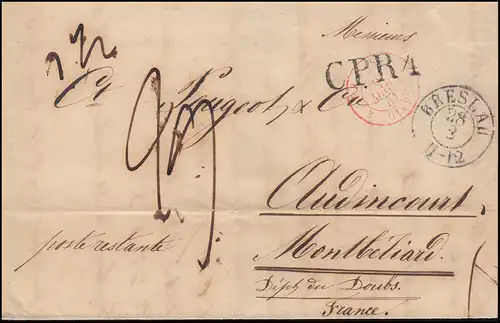 Messieurs
C.P.R 4
Ct Peugeot & Cie
BRESLAU
28
3
11-12
Audincourt
Montbéliard.
poste restante
Dépt du Doubs.
France.